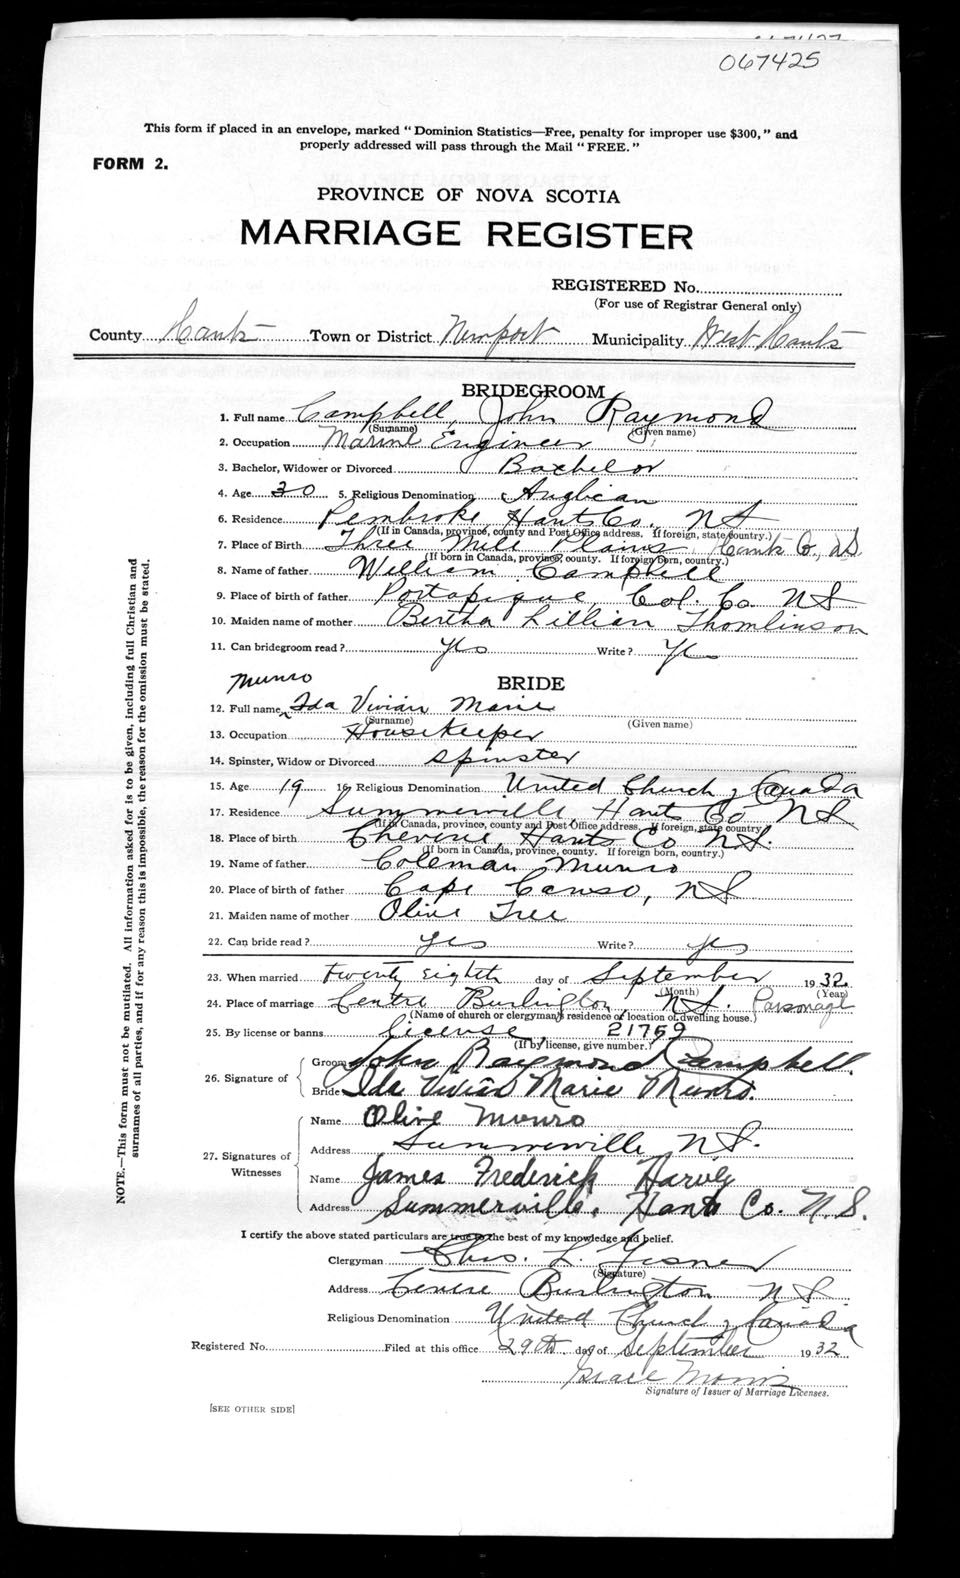 067425
This form if placed in an envelope, marked "Dominion Statistics—Free, penalty for improper use $300," and
properly addressed will pass through the Mail "FREE."
FORM 2.
PROVINCE OF NOVA SCOTIA
MARRIAGE REGISTER
REGISTERED No.
(For use of Registrar General only)
County Hants Town or District Newport Municipality West Hants
BRIDEGROOM
1. Full name Campbell, John Raymond
(Surname) (Given name)
2. Occupation Marine Engineer
3. Bachelor, Widower or Divorced Bachelor
4. Age 30 5. Religious Denomination Anglican
6. Residence Pembroke Hants Co., NS
(If in Canada, province, county and Post Office address. If foreign, state country.)
7. Place of Birth Three Mile Plains, Hants Co., NS
(If born in Canada, province, county. If foreign born, country.)
8. Name of father William Campbell
9. Place of birth of father Portapique, Col. Co. NS
10. Maiden name of mother Bertha Lillian Thomlinson
11. Can bridegroom read? Yes Write? Yes
Munro
BRIDE
12. Full name Ida Vivian Marie
(Surname) (Given name)
13. Occupation Housekeeper
14. Spinster, Widow or Divorced Spinster
15. Age 19 16. Religious Denomination United Church of Canada
17. Residence Summerville Hants Co NS
(If in Canada, province, county and Post Office address. If foreign, state country)
18. Place of birth Cheverie, Hants Co NS.
(If born in Canada, province, county. If foreign born, country.)
19. Name of father Coleman Munro
20. Place of birth of father Cape Canso, NS
21. Maiden name of mother Olive Tree
22. Can bride read? yes Write? yes
23. When married twenty eighth day of September 1932
(Month) (Year)
24. Place of marriage Centre Burlington NS. Parsonage
(Name of church or clergyman's residence or location of dwelling house.)
25. By license or banns license, 21769
(If by license, give number.)
26. Signature of
Groom John Raymond Campbell.
Bride Ida Vivian Marie Munro.
27. Signatures of
Witnesses
Name Olive Munro
Address Summerville NS.
Name James Frederick Harvey
Address Summerville, Hants Co. N.S.
I certify the above stated particulars are true to the best of my knowledge and belief.
Clergyman Chas. L. Gesner
(Signature)
Address Centre Burlington NS.
Religious Denomination United Church of Canada
Registered No. Filed at this office 29th day of September 1932
Grace Morris
Signature of Issuer of Marriage Licenses.
[SEE OTHER SIDE]
NOTE.—This form must not be mutilated. All information asked for is to be given, including full Christian and
surnames of all parties, and if for any reason this is impossible, the reason for the omission must be stated.